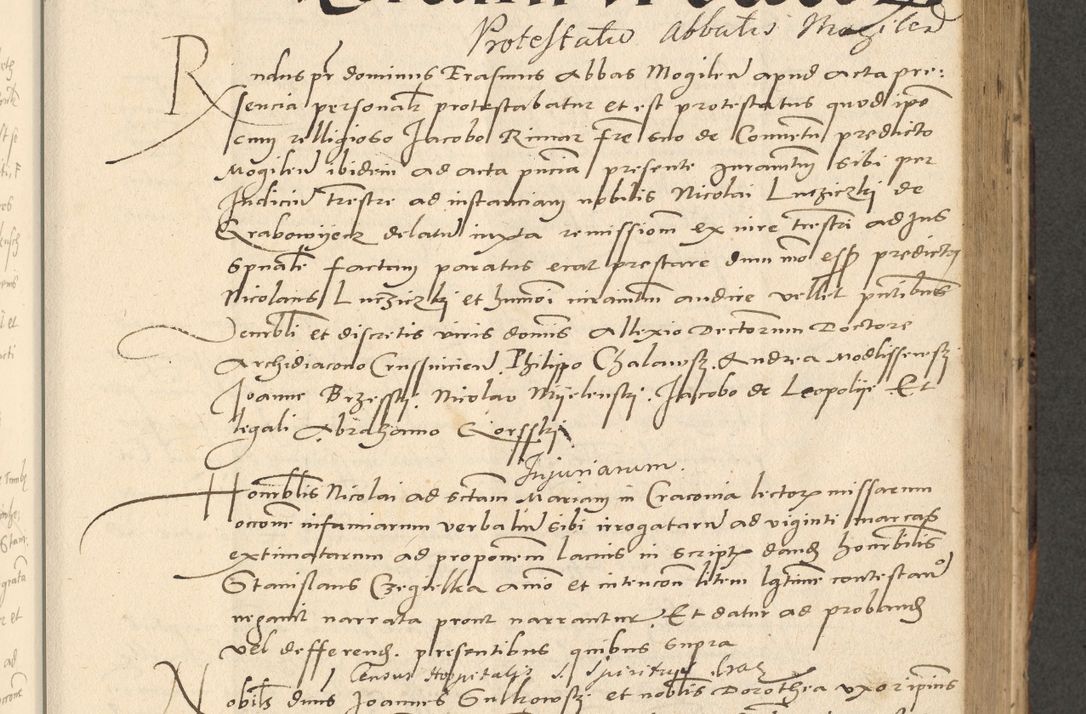 Protestatio Abbatis Mogilen
Rndus pr dominus Erasmus Abbas Mogilen apud acta pre:
sencia personalr protestabatur et est protestatus quod ipse
cum relligioso Jacobo Rimar fre suo de Conventu predicto
Mogilen ibidem ad acta pncia presente juramtum sibi per
Judicium trestre ad instanciam nobilis Nicolai Luczizki de
Grabowyecz delatum iuxta remissionem ex iure trestri ad Jus
spuale factam paratus erat prestare dum mo esset predictus
Nicolaus Luczizki et humoi iuramtum audire vellet pntibus
Venerbli et discretis viris domis Allexio Decretorum Doctore
Archidiacono Crusvicien Philippo Chalawsz. Andrea Modlissewsz
Joanne Brzessky. Nicolao Myelensky. Jacobo de Leopolye Et
legali Abrahamo Gorssky
Injuriarum.
Honorblis Nicolai ad sctam Mariam in Cracovia lectoris missarum
occone infamiarum verbalium sibi irrogatarum ad viginti marcas
extimatarum ad proponem lacius in scriptis dand honorbilis
Stanislaus Czegielka animo et intencone litem lgtime contestan
negavit narrata prout narrantur. Et datur ad proband
vel defferend. presentibus quibus supra
Census Hospitalis S. Spiritus Crac
Nobils dnus Joannes Sulkowsky et noblis Dorothea uxor ipius